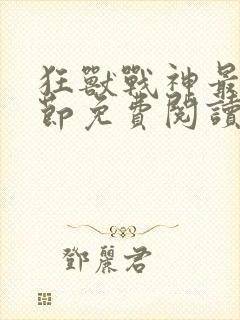 狂獸戰神最
節免費閱讀
鄧麗君